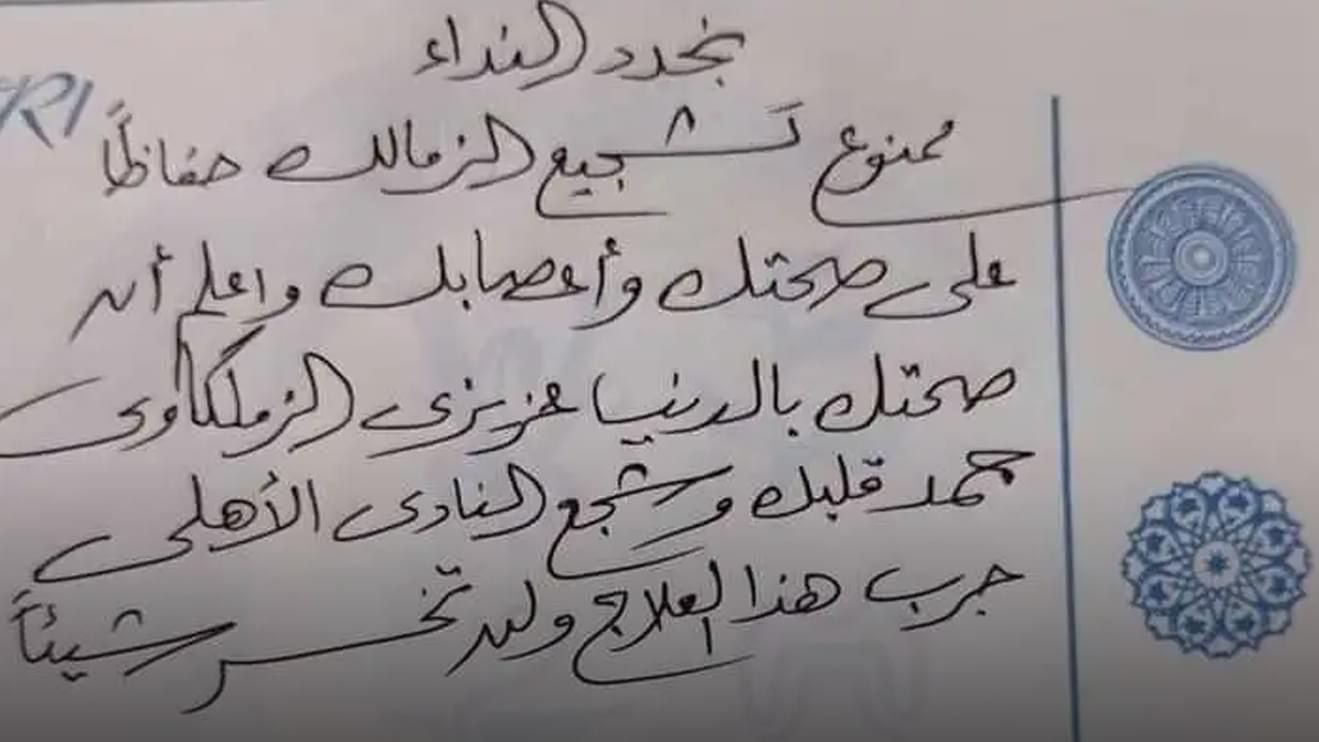 نجدد النداء
ممنوع تشجيع الزمالك حفاظاً
على صحتك وأعصابك واعلم أن
صحتك بالدنيا عزيزى الزملكاوى
جمد قلبك وشجع النادى الأهلى
جرب هذا العلاج ولن تخسر شيئاً
RI